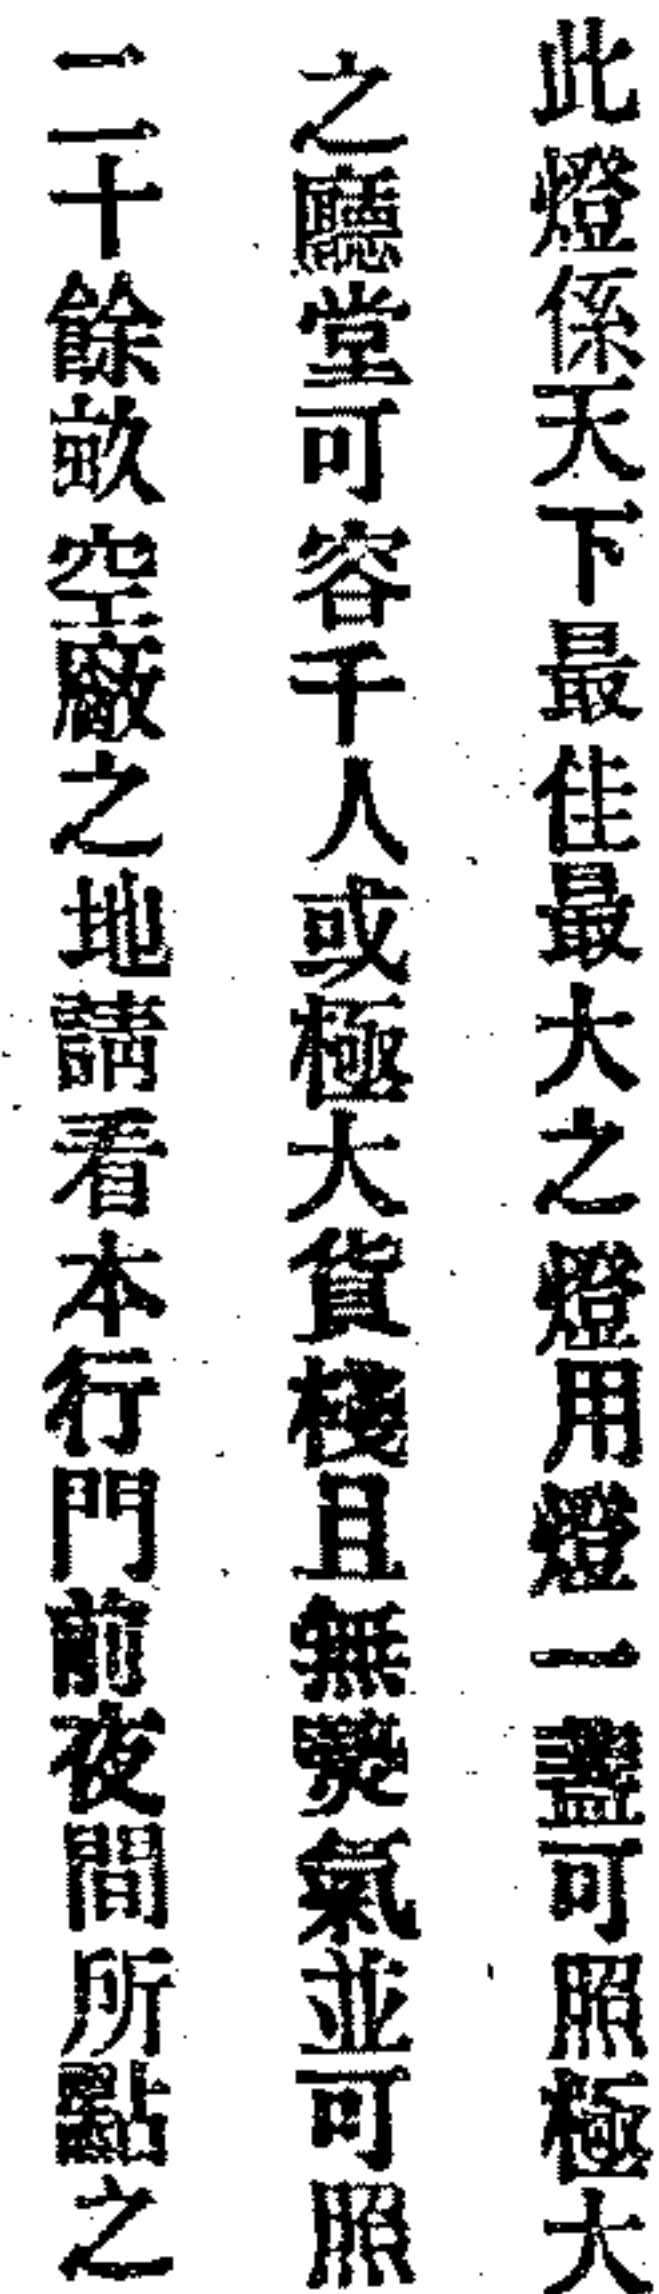 此燈係天下最佳最大之燈用燈一盞可照極大
之廳堂可容千人或極大貨棧且無煲氣並可照
二十餘畝空廠之地請看本行門前夜間所點之